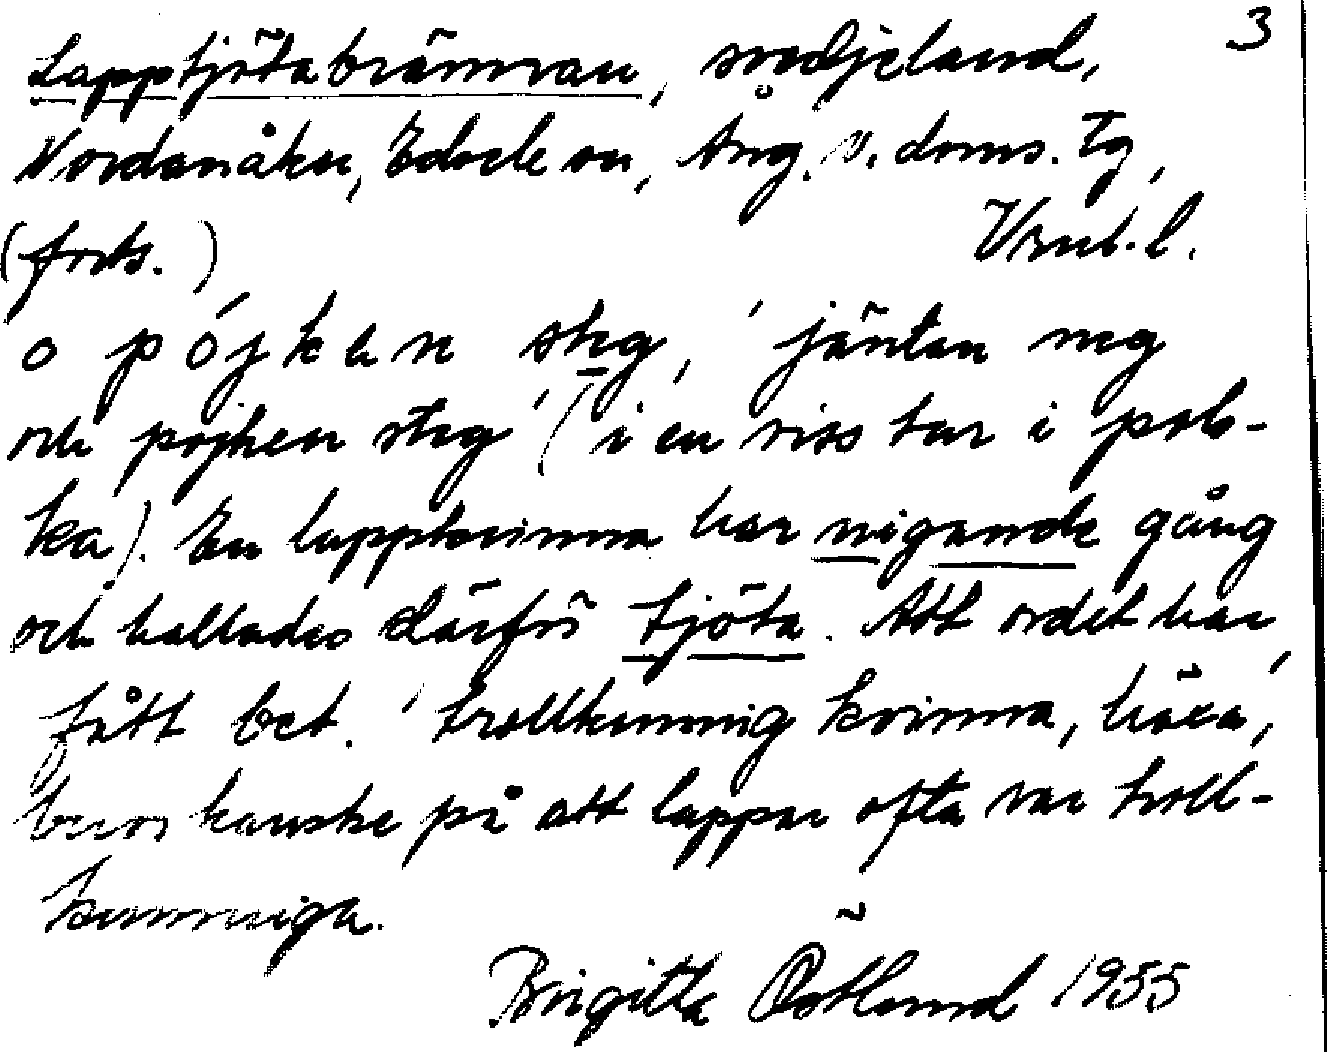 3
Lapptjötabrännan, svedjeland,
Nordanåker, Edsele sn, Ång. v. doms. tg,
(forts.) Vbnl. l.
o pójken steg, 'jäntan neg
och pojken steg' (i en viss tur i pols-
ka). En lappkvinna har nigande gång
och kallades därför tjöta. Att ordet har
fått bet. 'trollkunnig kvinna, häxa',
beror kanske på att lappar ofta var troll-
kunniga.
Birgitta Östlund 1955